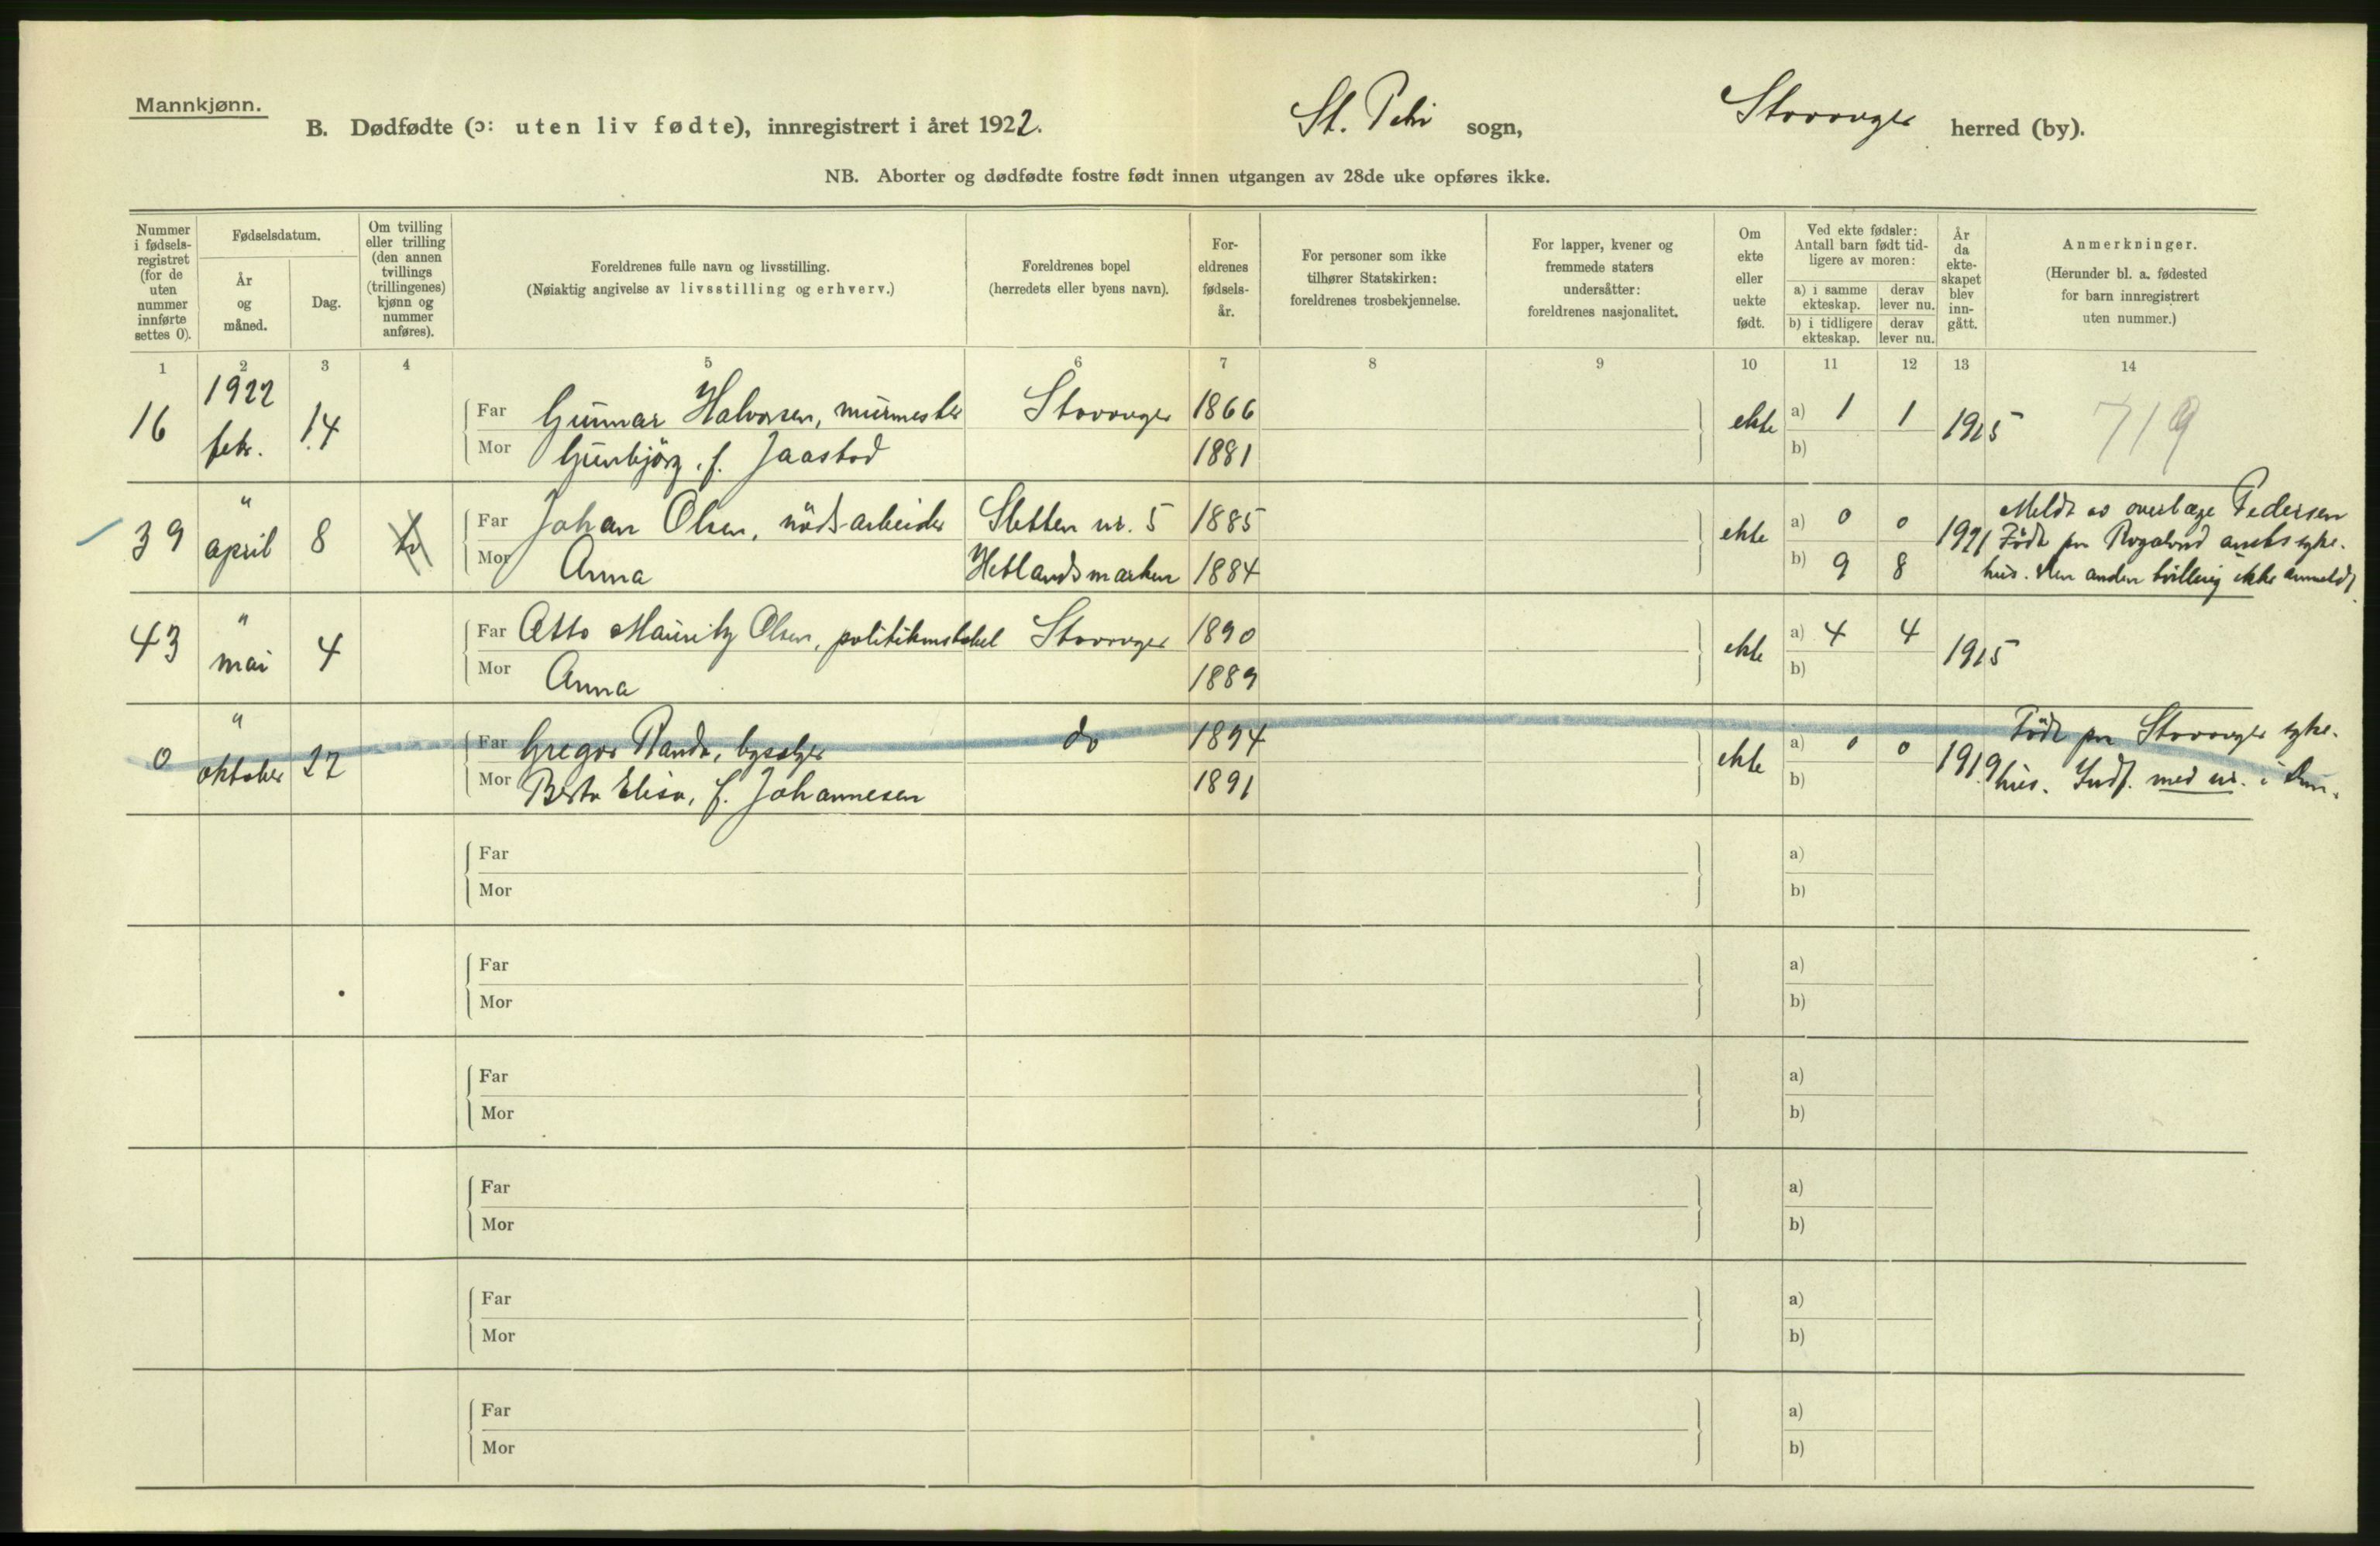 Mannkjønn.
B. Dødfødte (ɔ: uten liv fødte), innregistrert i året 1922. St. Petri sogn, Stavanger herred (by).
NB. Aborter og dødfødte fostre født innen utgangen av 28de uke opføres ikke.
Nummer i fødsels- registret (for de uten nummer innførte settes 0).
Fødselsdatum.
År og måned.
Dag.
Om tvilling eller trilling (den annen tvillings (trillingenes) kjønn og nummer anføres).
Foreldrenes fulle navn og livsstilling.
(Nøiaktig angivelse av livsstilling og erhverv.)
Foreldrenes bopel
(herredets eller byens navn).
For- eldrenes fødsels- år.
For personer som ikke tilhører Statskirken: foreldrenes trosbekjennelse.
For lapper, kvener og fremmede staters undersåtter: foreldrenes nasjonalitet.
Om ekte eller uekte født.
Ved ekte fødsler: Antall barn født tid- ligere av moren:
a) i samme ekteskap.
derav lever nu.
b) i tidligere ekteskap.
derav lever nu.
År da ekte- skapet blev inn- gått.
Anmerkninger.
(Herunder bl. a. fødested for barn innregistrert uten nummer.)
1 2 3 4 5 6 7 8 9 10 11 12 13 14
16 1922 febr. 14 Far Gunnar Halvorsen, murmester Stavanger 1866 ekte a) 1 1 1915 719
Mor Gunbjörg, f. Jaastad 1881 b)
39 " april 8 Far Johan Olsen, nödsarbeider Sletten nr. 5 1885 ekte a) 0 0 1921 Meldt av overlæge Pedersen
Mor Anna Hetlandsmarken 1884 b) 9 8 Födt paa Rogaland syke-
hus. Den anden tvilling ikke anmeldt.
43 " mai 4 Far Otto Mauritz Olsen, politikonstabel Stavanger 1890 ekte a) 4 4 1915
Mor Anna 1889 b)
0 " oktober 22 Far Gregor Randa, do 1894 ekte a) 0 0 1919 Födt paa Stavanger syke-
Mor Berta Elisa, f. Johannesen 1891 b) hus. Indf. med nr. i
Far a)
Mor b)
Far a)
Mor b)
Far a)
Mor b)
Far a)
Mor b)
Far a)
Mor b)
Far a)
Mor b)